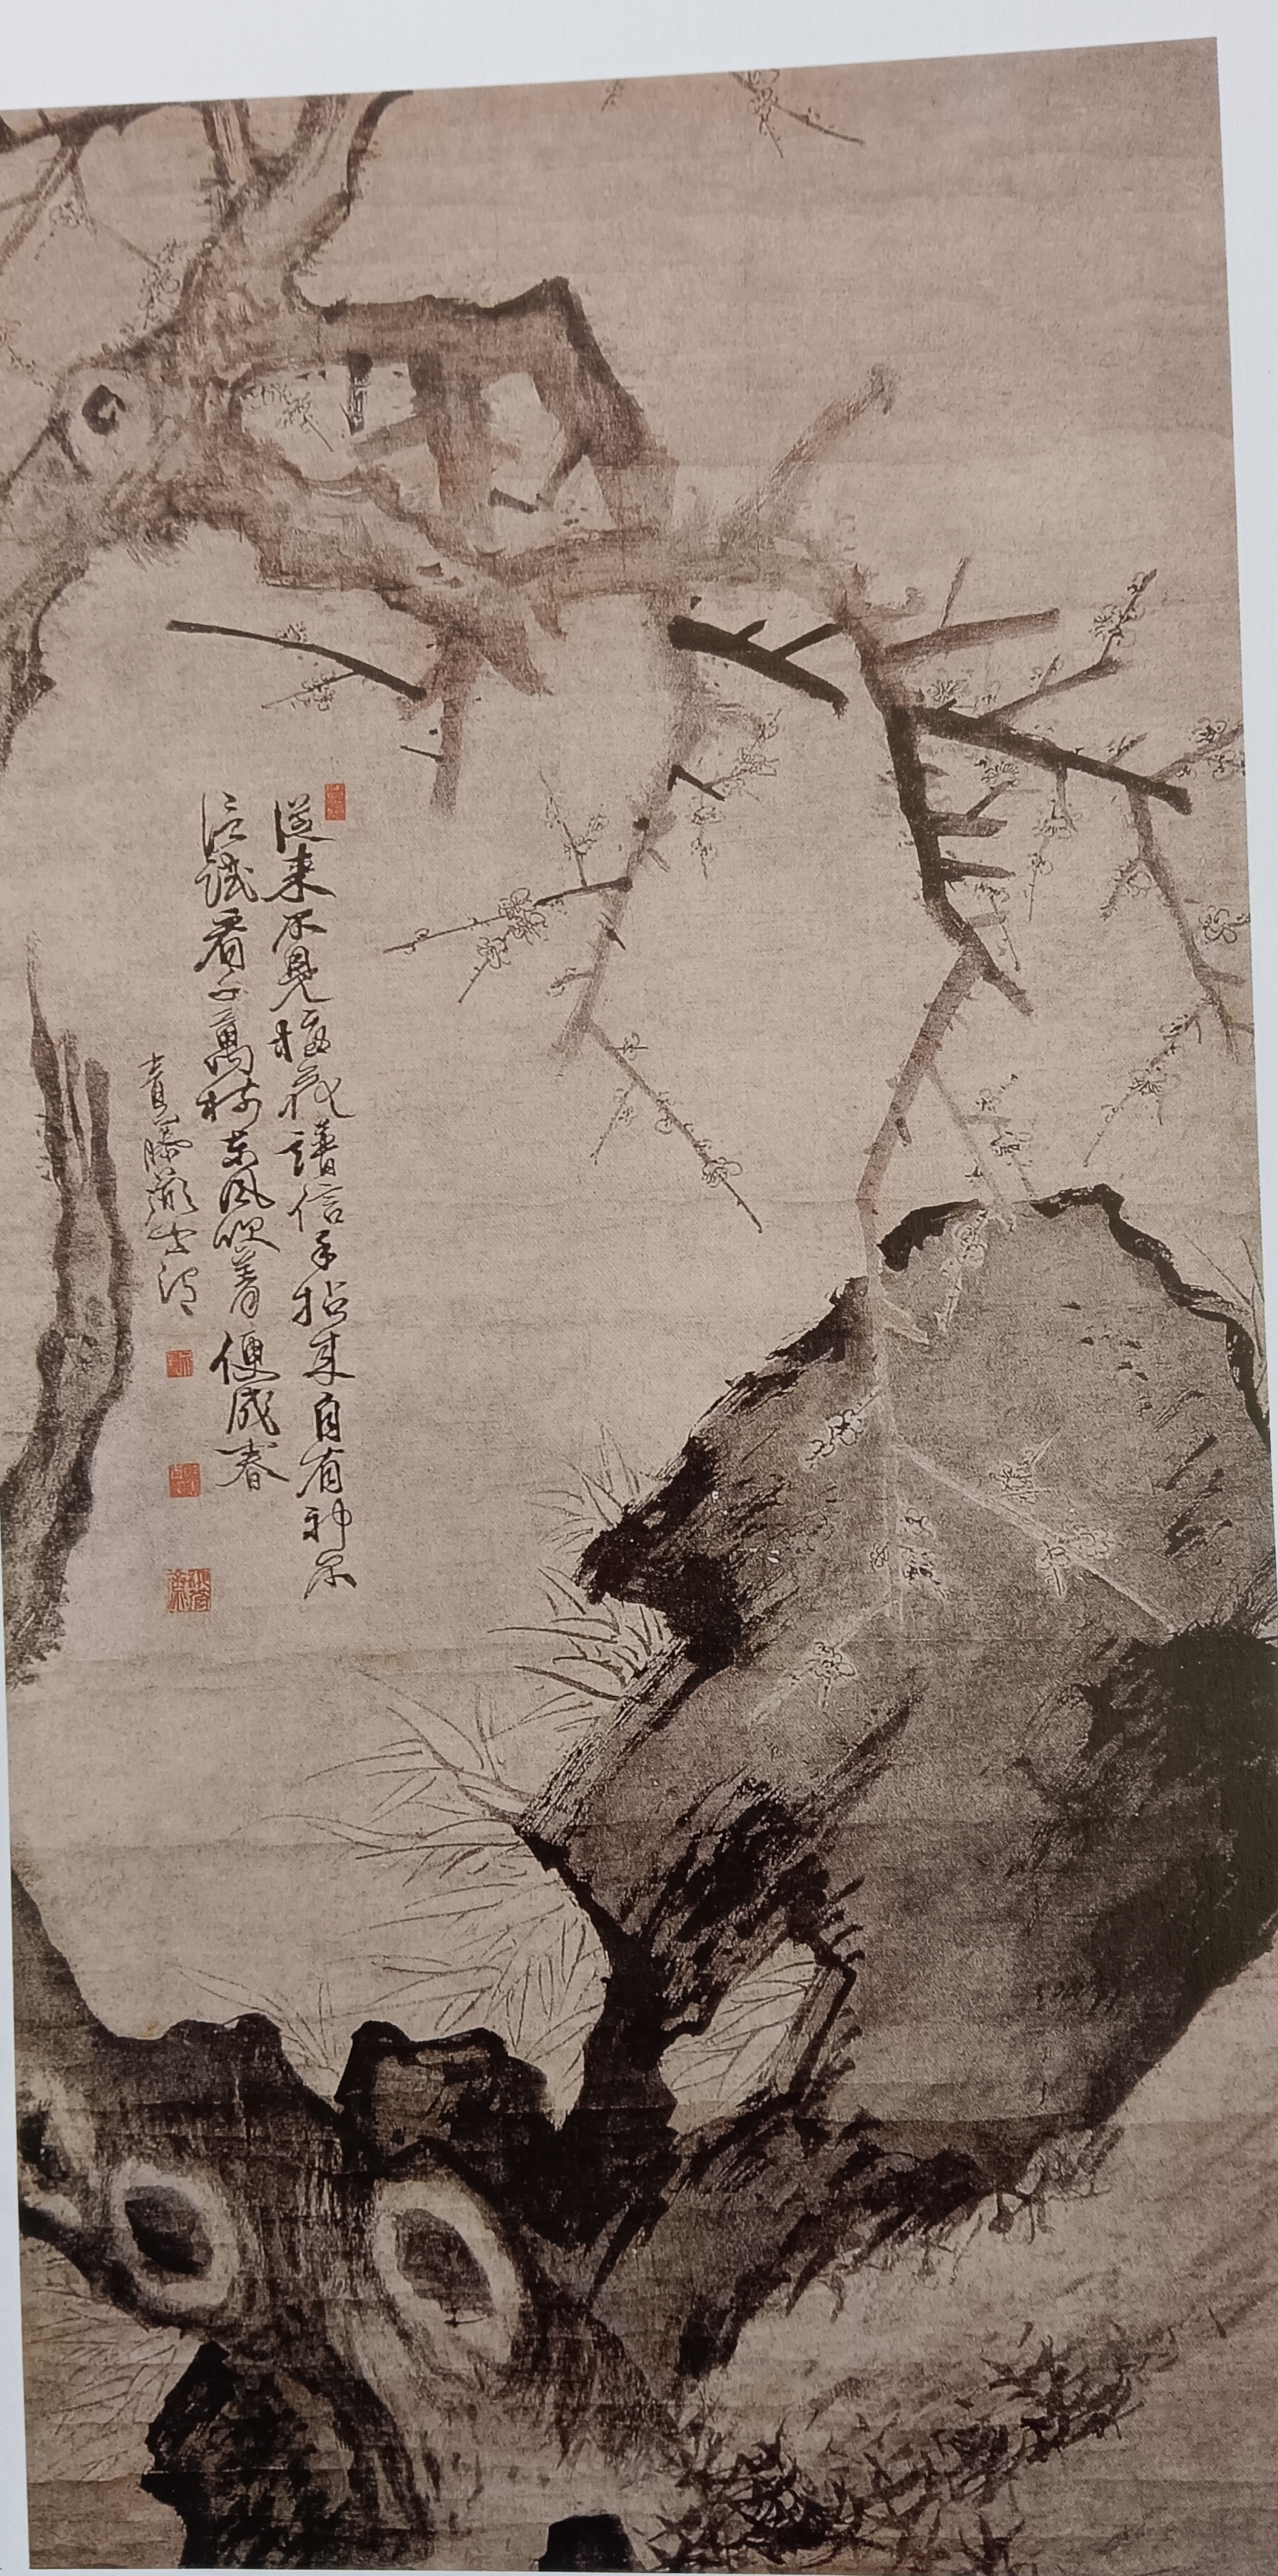 從来不見梅花譜信手拈来自有神不
信試看千萬樹東風吹着便成春
青藤渭